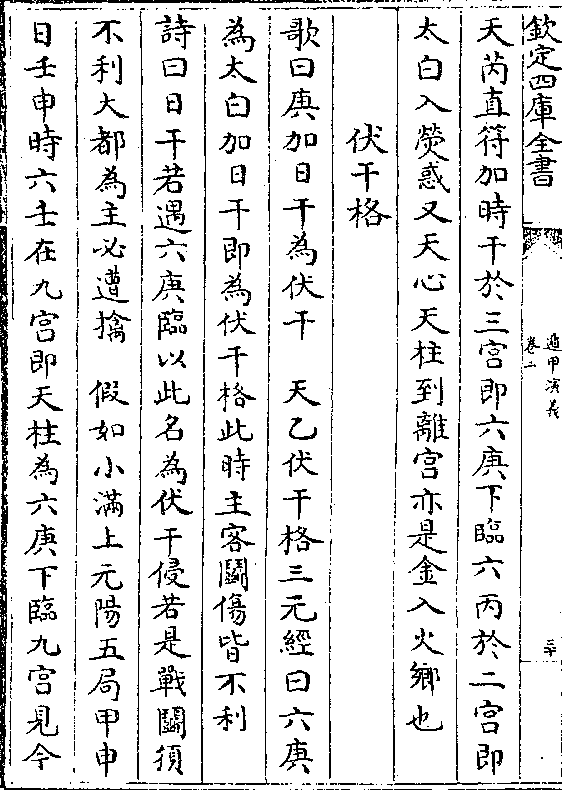 欽定四庫全書
遁甲演義
卷二
三十
天芮直符加時干於三宮即六庚下臨六丙於二宮即
太白入熒惑又天心天柱到離宮亦是金入火鄉也
伏干格
歌曰庚加日干為伏干　天乙伏干格三元經曰六庚
為太白加日干即為伏干格此時主客鬭傷皆不利
詩曰日干若遇六庚臨以此名為伏干侵若是戰鬭須
不利大都為主必遭擒　假如小滿上元陽五局甲申
日壬申時六壬在九宮即天柱為六庚下臨九宮見今